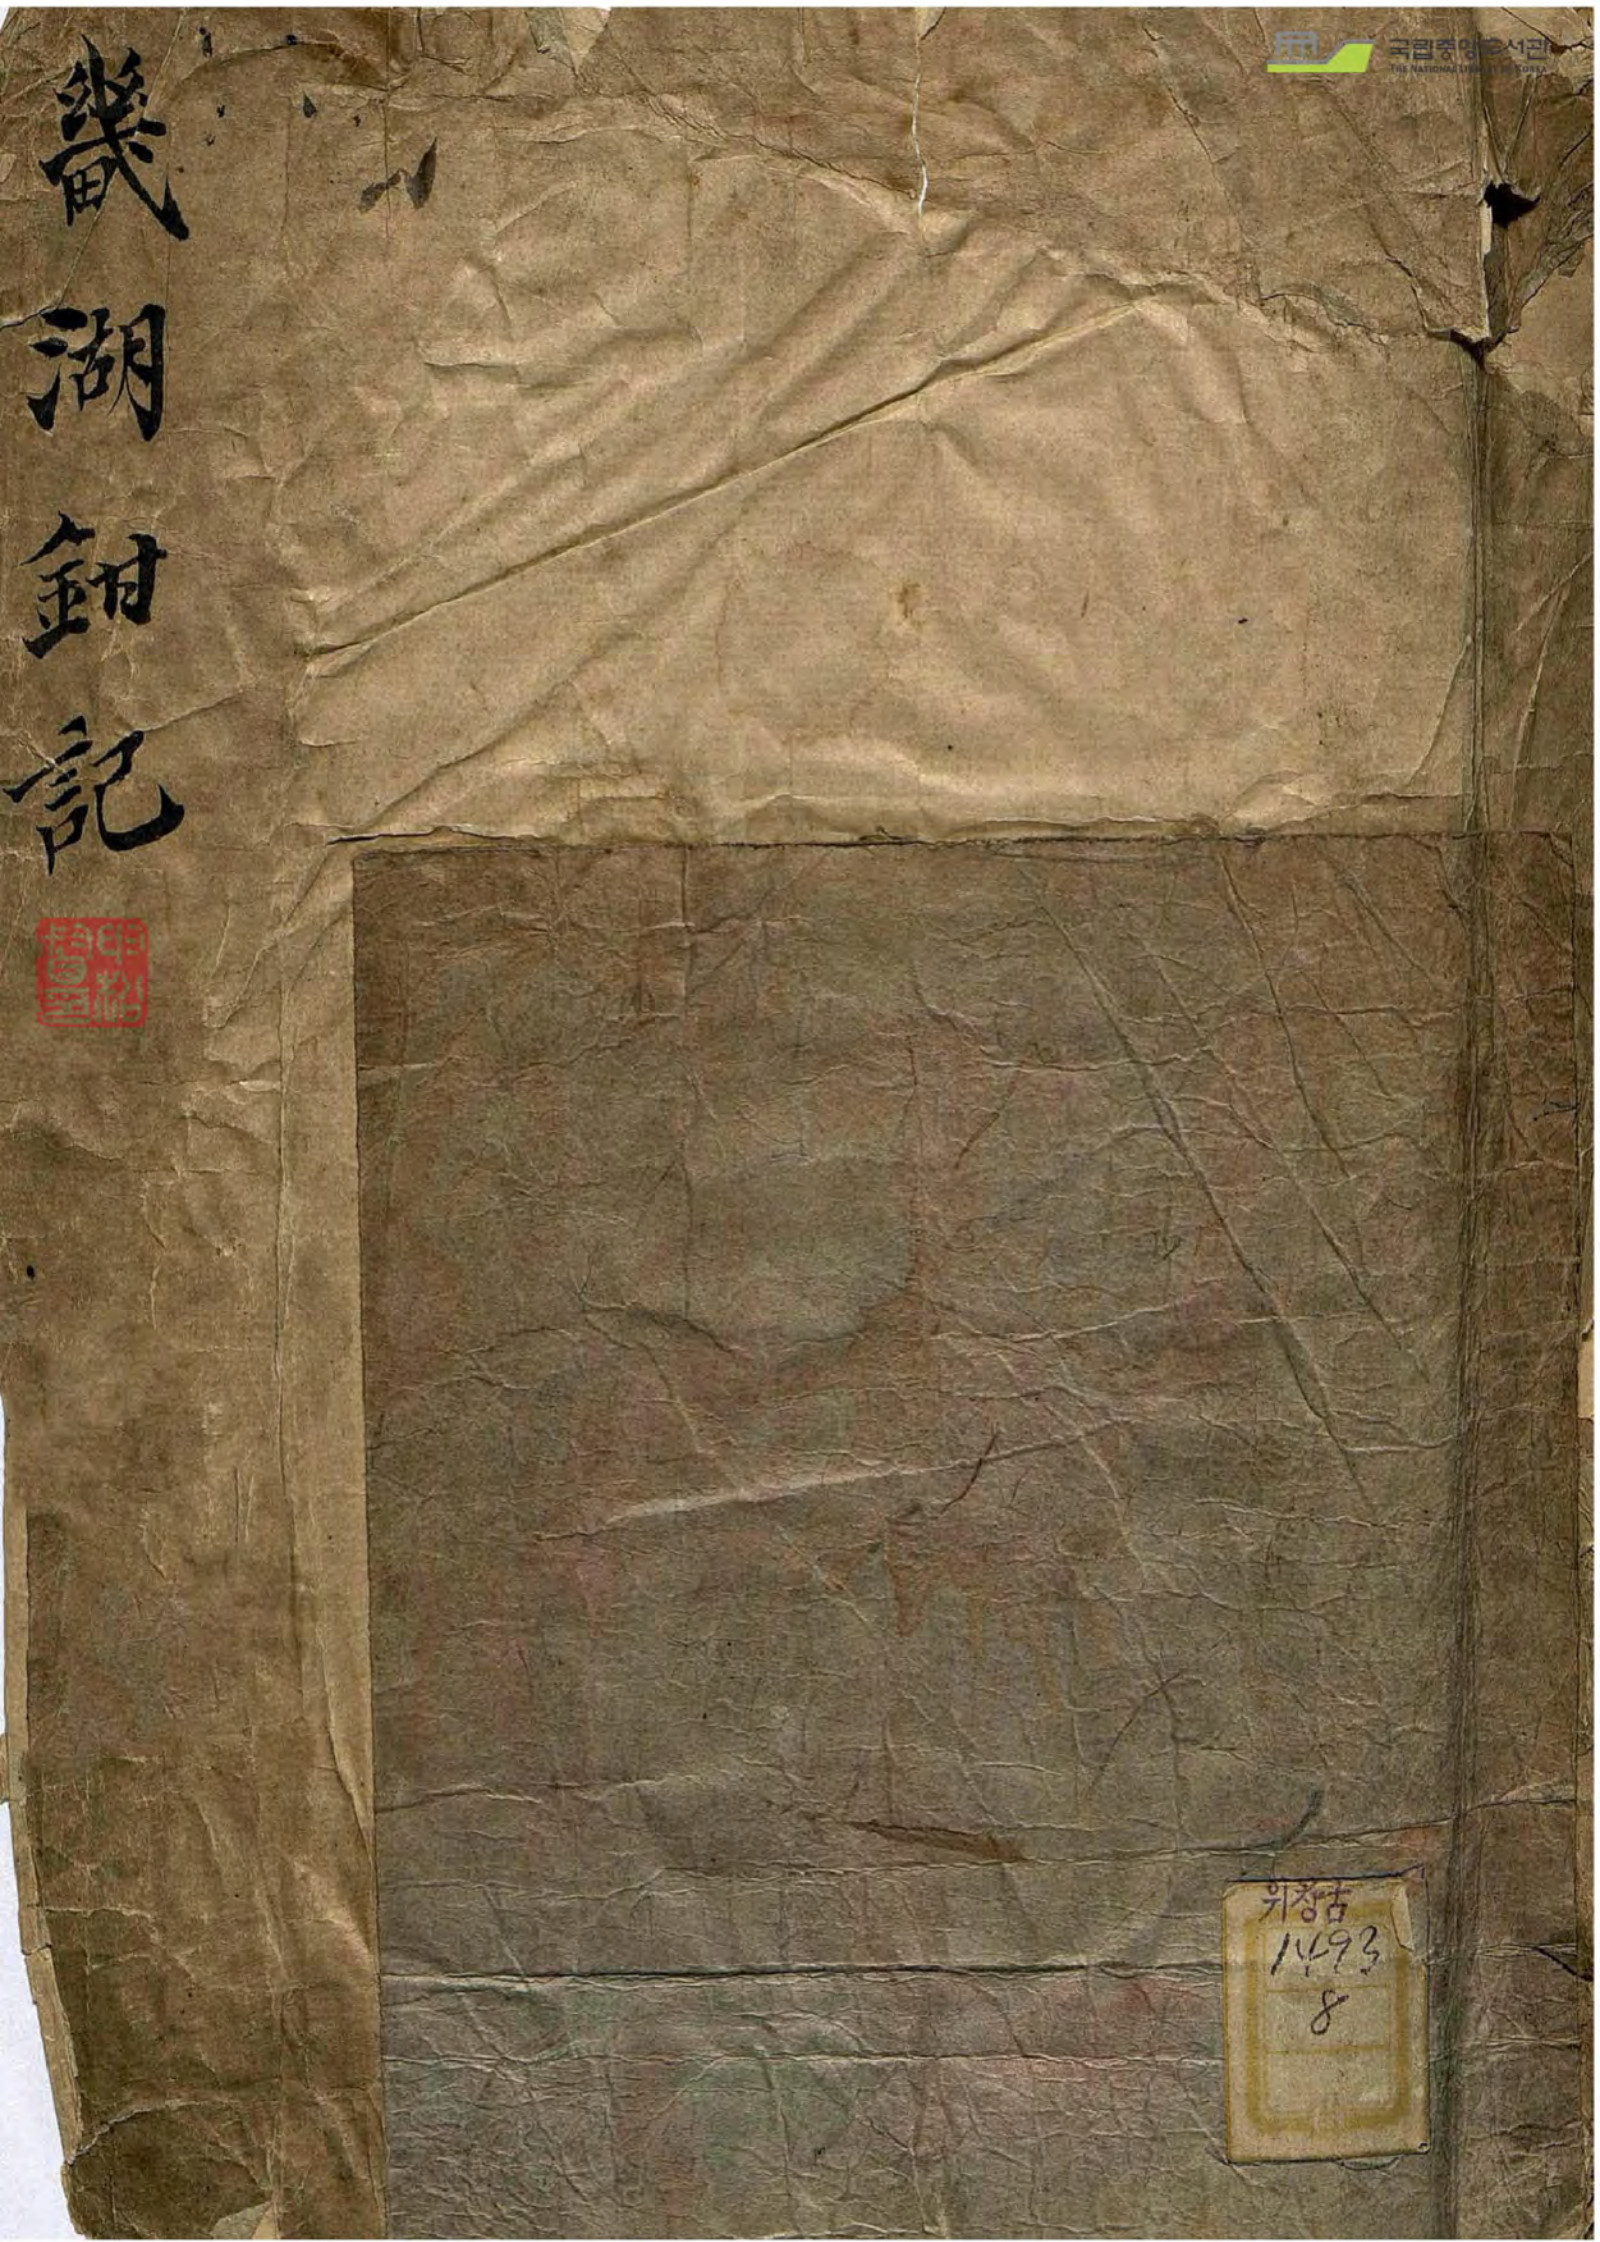 국립중앙도서관
THE NATIONAL LIBRARY OF KOREA
畿湖鉗記
위창古
1493
8